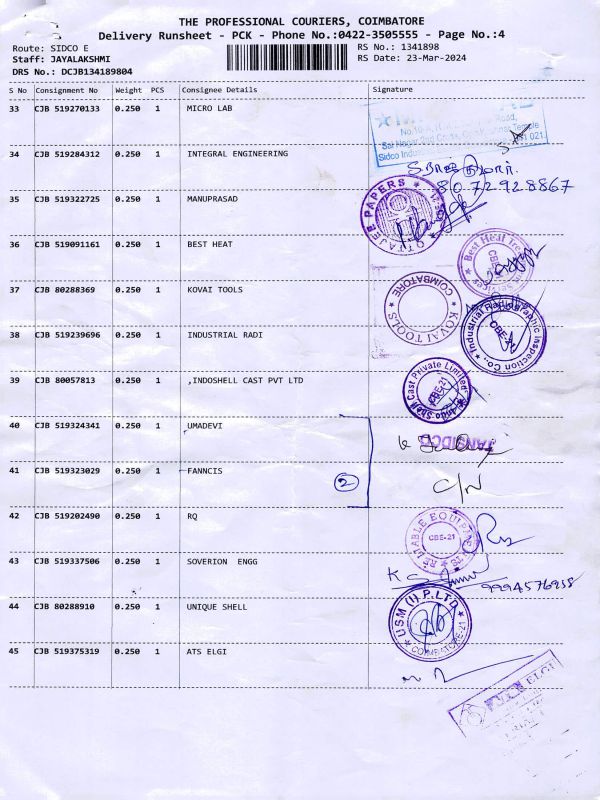 THE PROFESSIONAL COURIERS, COIMBATORE
Delivery Runsheet - PCK - Phone No.:0422-3505555 - Page No.:4
Route: SIDCO E
RS No.: 1341898
Staff: JAYALAKSHMI
RS Date: 23-Mar-2024
DRS No.: DCJB134189804
S No Consignment No Weight PCS Consignee Details Signature
33 CJB 519270133 0.250 1 MICRO LAB
34 CJB 519284312 0.250 1 INTEGRAL ENGINEERING
8072928867
35 CJB 519322725 0.250 1 MANUPRASAD
PAPERS
36 CJB 519091161 0.250 1 BEST HEAT
Best Heat
37 CJB 80288369 0.250 1 KOVAI TOOLS
KOVAI TOOLS COIMBATORE
38 CJB 519239696 0.250 1 INDUSTRIAL RADI
Industrial Radiographic Inspection Co., CBE-21
39 CJB 80057813 0.250 1 ,INDOSHELL CAST PVT LTD
Indo Shell Cast Private Limited CBE-21
40 CJB 519324341 0.250 1 UMADEVI
TANSIDCO
41 CJB 519323029 0.250 1 FANNCIS
2
C/N
42 CJB 519202490 0.250 1 RQ
RELIABLE EQUIPMENTS CBE-21
43 CJB 519337506 0.250 1 SOVERION ENGG
44 CJB 80288910 0.250 1 UNIQUE SHELL
USM (I) P.LTD COIMBATORE-21
45 CJB 519375319 0.250 1 ATS ELGI
ELGI